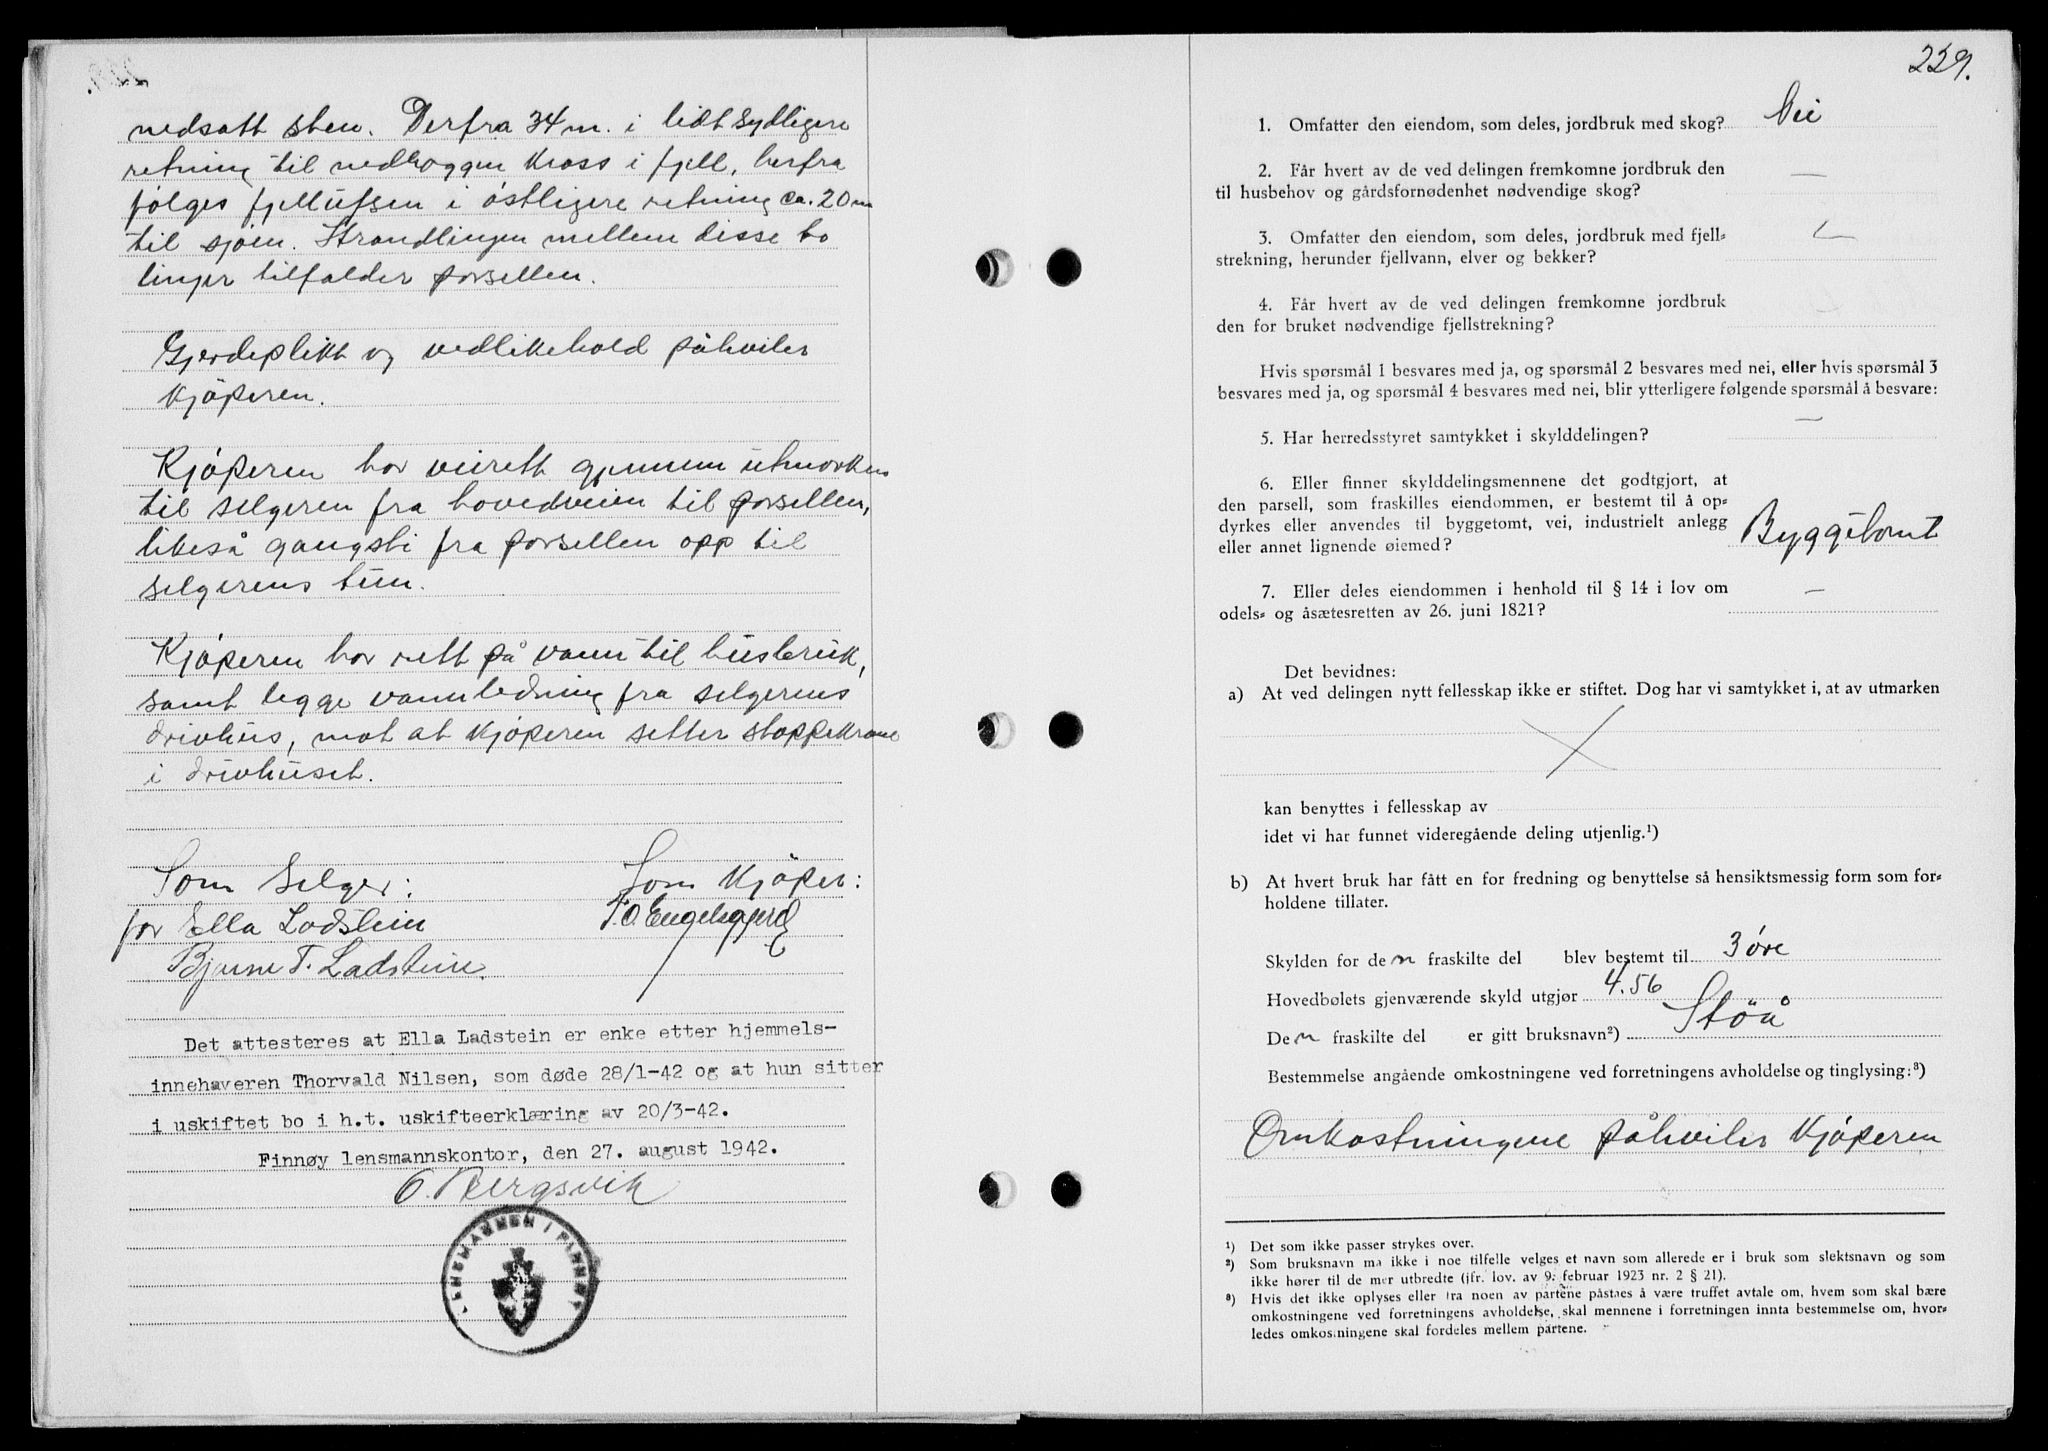 nedsatt sten. Derfra 34 m. i lidt sydligere
retning til nedhoggen Kross i fjell, herfra
følges fjellufsen i östligere retning ca. 20 m
til sjöen. Strandlinjen mellem disse to
linjer tilfalder parsellen.
Gjerdeplikt og vedlikehold påhviler
Kjöperen.
Kjöperen har veirett gjennem utmarken
til selgeren fra hovedveien til parsellen,
likeså gangsti fra parsellen opp til
selgerens tun.
Kjöperen har rett på vann til husbruk,
samt legge vannledning fra selgerens
drivhus, mot at Kjöperen setter stoppekrane
i drivhuset.
Som Selger: Som Kjöper:
for Ella Ladstein T. O. Engelsgjerd
Bjarne T. Ladstein.
Det attesteres at Ella Ladstein er enke etter hjemmels-
innehaveren Thorvald Nilsen, som døde 28/1-42 og at hun sitter
i uskiftet bo i h.t. uskifteerklæring av 20/3-42.
Finnøy lensmannskontor, den 27. august 1942.
O. Bergsvik
LENSMANNEN I FINNØY
229.
1. Omfatter den eiendom, som deles, jordbruk med skog? Nei
2. Får hvert av de ved delingen fremkomne jordbruk den
til husbehov og gårdsfornødenhet nødvendige skog? —
3. Omfatter den eiendom, som deles, jordbruk med fjell-
strekning, herunder fjellvann, elver og bekker? —
4. Får hvert av de ved delingen fremkomne jordbruk
den for bruket nødvendige fjellstrekning?
Hvis spørsmål 1 besvares med ja, og spørsmål 2 besvares med nei, eller hvis spørsmål 3
besvares med ja, og spørsmål 4 besvares med nei, blir ytterligere følgende spørsmål å besvare:
5. Har herredsstyret samtykket i skylddelingen? —
6. Eller finner skylddelingsmennene det godtgjort, at
den parsell, som fraskilles eiendommen, er bestemt til å op-
dyrkes eller anvendes til byggetomt, vei, industrielt anlegg
eller annet lignende øiemed? Byggetomt
7. Eller deles eiendommen i henhold til § 14 i lov om
odels- og åsætesretten av 26. juni 1821? —
Det bevidnes:
a) At ved delingen nytt fellesskap ikke er stiftet. Dog har vi samtykket i, at av utmarken
kan benyttes i fellesskap av
idet vi har funnet videregående deling utjenlig.¹)
b) At hvert bruk har fått en for fredning og benyttelse så hensiktsmessig form som for-
holdene tillater.
Skylden for den fraskilte del blev bestemt til 3 öre
Hovedbølets gjenværende skyld utgjør 4.56
Den fraskilte del er gitt bruksnavn²) Stöå
Bestemmelse angående omkostningene ved forretningens avholdelse og tinglysing:³)
Omkostningene påhviler Kjöperen
¹) Det som ikke passer strykes over.
²) Som bruksnavn må ikke i noe tilfelle velges et navn som allerede er i bruk som slektsnavn og som
ikke hører til de mer utbredte (jfr. lov. av 9. februar 1923 nr. 2 § 21).
³) Hvis det ikke oplyses eller fra noen av partene påstaes å være truffet avtale om, hvem som skal bære
omkostningene ved forretningens avholdelse, skal mennene i forretningen innta bestemmelse om, hvor-
ledes omkostningene skal fordeles mellem partene.